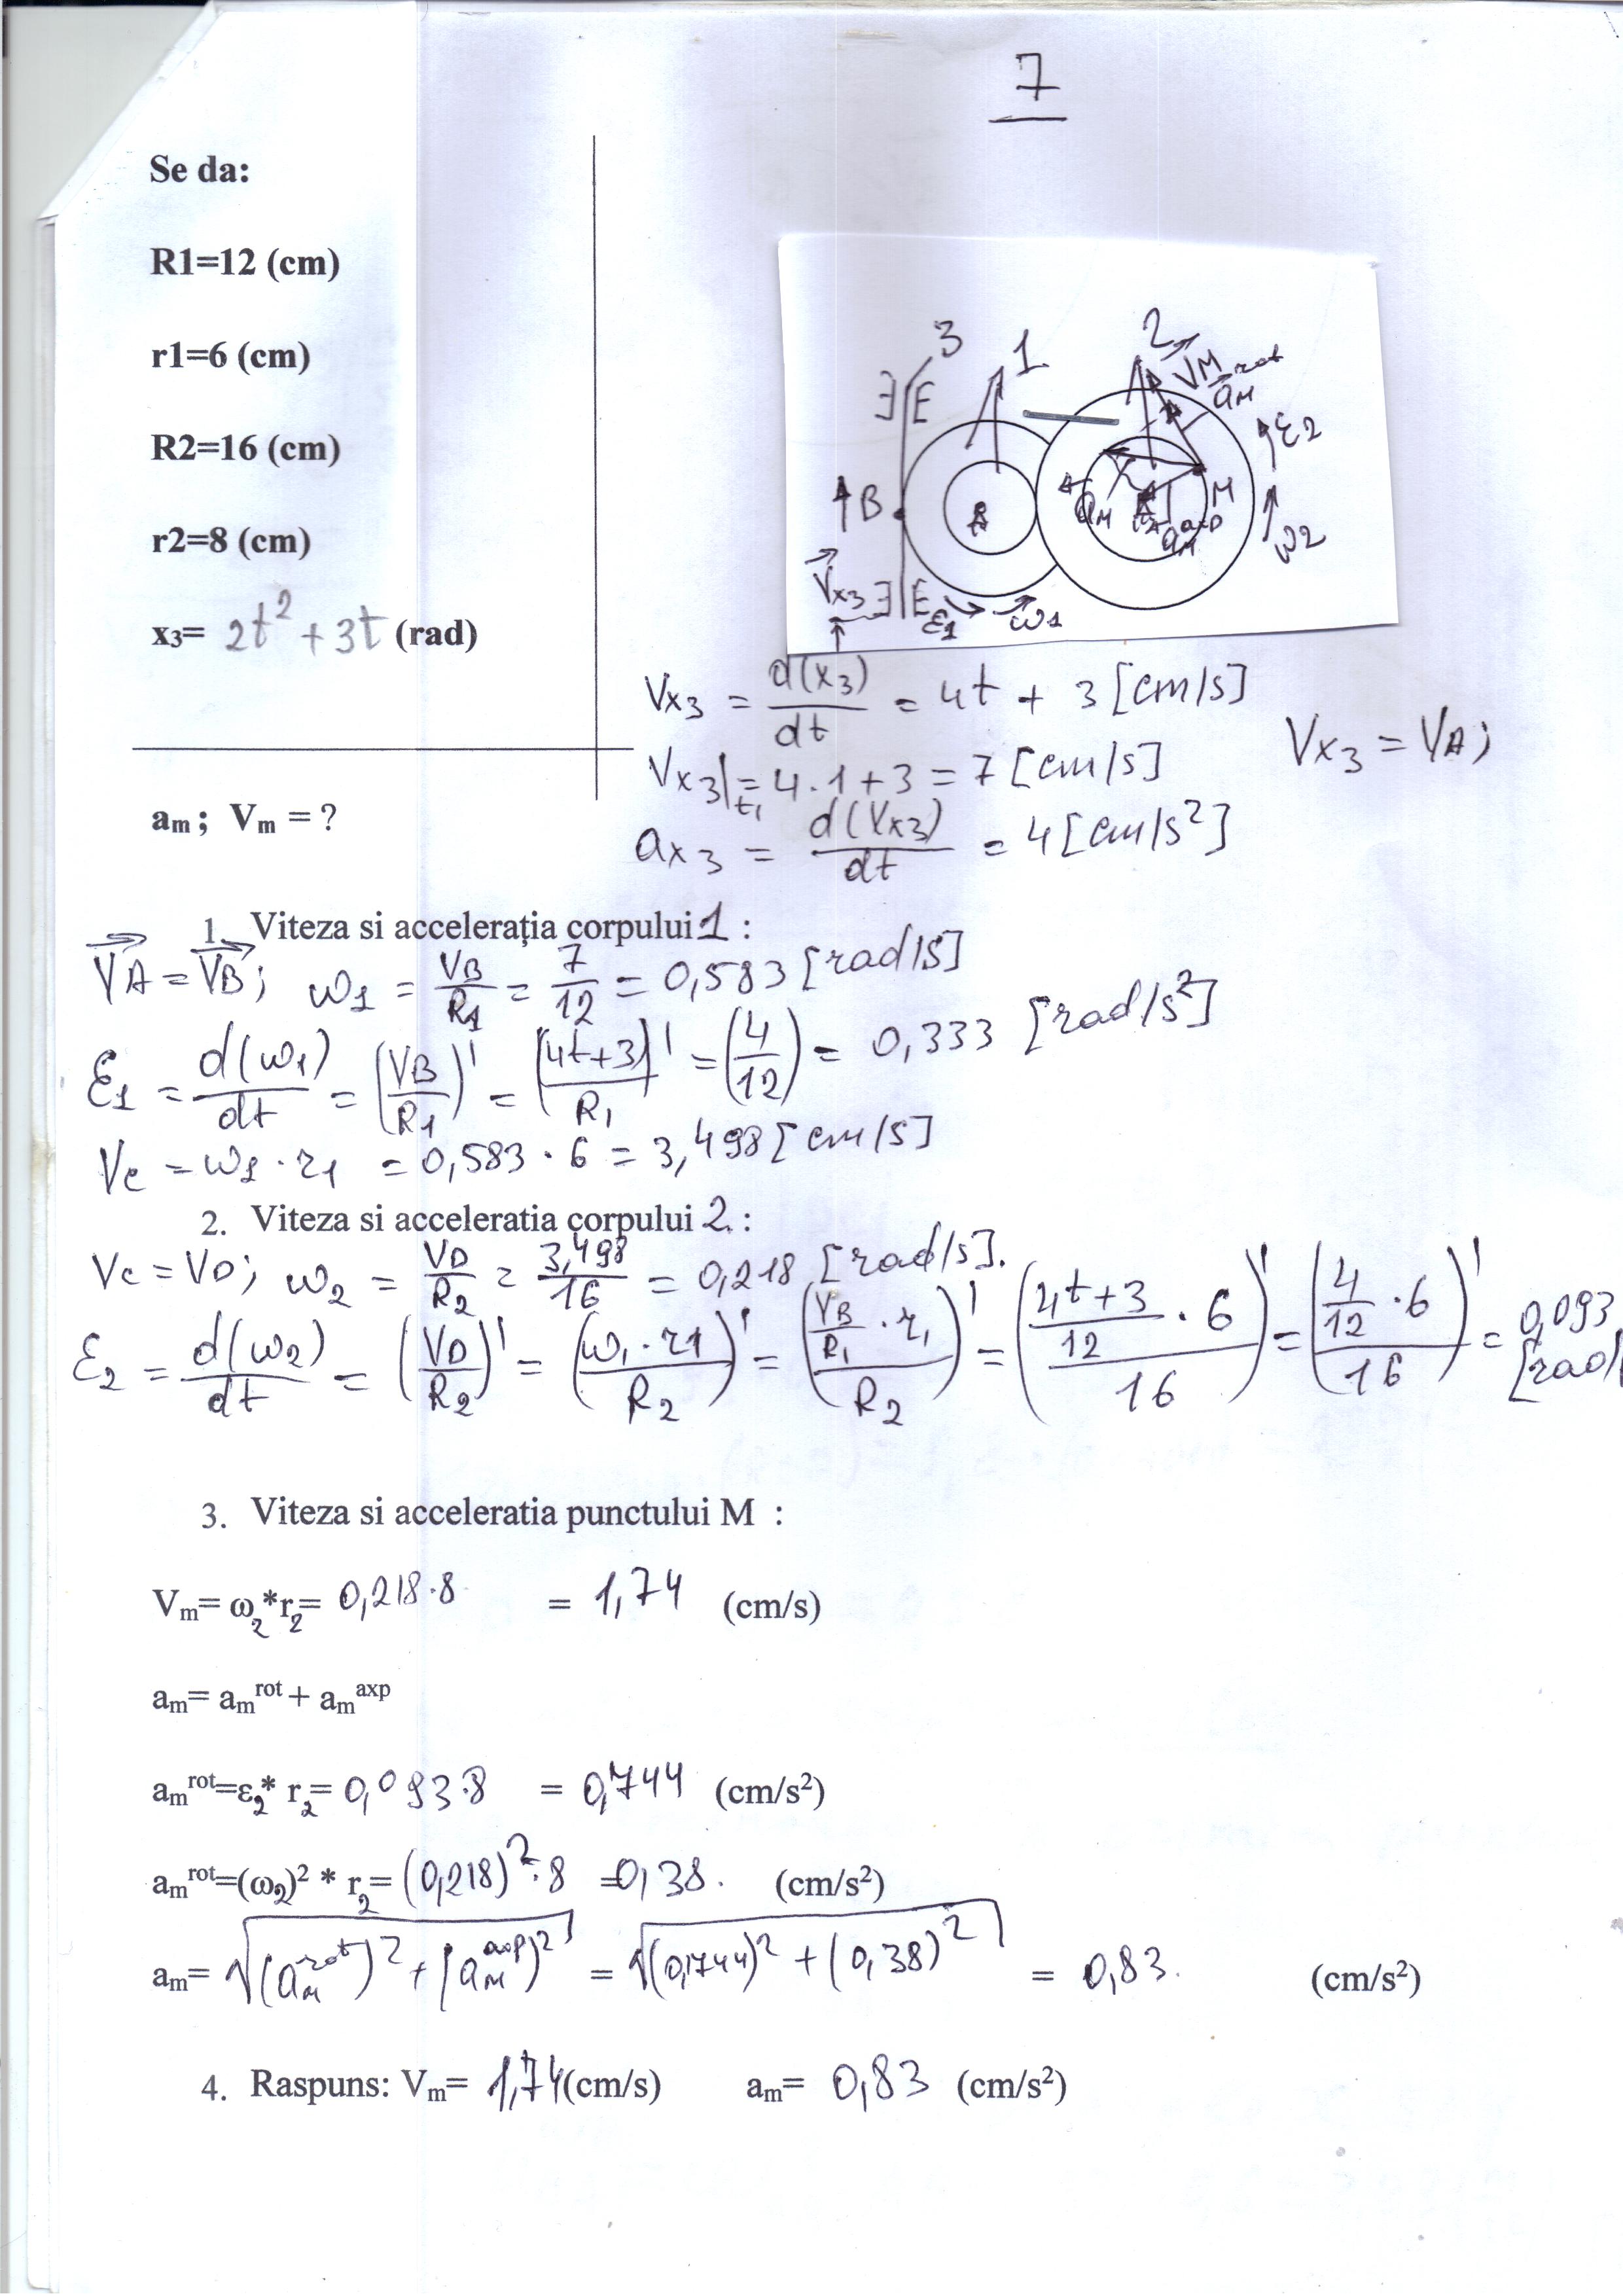 7
Se da:
R1=12 (cm)
r1=6 (cm)
R2=16 (cm)
r2=8 (cm)
x3= 2t² + 3t (rad)
am ; Vm = ?
3 1 2 VM aM rot
∃ E ε2
B A aM M aM axp ω2
Vx3 ∃ E ε1 ω1
Vx3 = d(x3)/dt = 4t + 3 [cm/s]
Vx3|t1 = 4·1+3 = 7 [cm/s] Vx3 = VA;
ax3 = d(Vx3)/dt = 4 [cm/s²]
1. Viteza si accelerația corpului 1 :
VA = VB; ω1 = VB/R1 = 7/12 = 0,583 [rad/s]
ε1 = d(ω1)/dt = (VB/R1)' = ((4t+3)/R1)' = (4/12) = 0,333 [rad/s²]
Vc = ω1 · r1 = 0,583 · 6 = 3,498 [cm/s]
2. Viteza si acceleratia corpului 2 :
Vc = VD; ω2 = VD/R2 = 3,498/16 = 0,218 [rad/s].
ε2 = d(ω2)/dt = (VD/R2)' = (ω1·r1/R2)' = (VB/R1·r1/R2)' = ((4t+3)/12·6/16)' = (4/12·6/16)' = 0,093 [rad/
3. Viteza si acceleratia punctului M :
Vm= ω2*r2= 0,218·8 = 1,74 (cm/s)
am= am rot + am axp
am rot=ε2* r2= 0,093·8 = 0,744 (cm/s²)
am rot=(ω2)² * r2= (0,218)²·8 =0,38. (cm/s²)
am= √(aM rot)² + (aM axp)² = √(0,744)² + (0,38)² = 0,83. (cm/s²)
4. Raspuns: Vm= 1,74(cm/s) am= 0,83 (cm/s²)